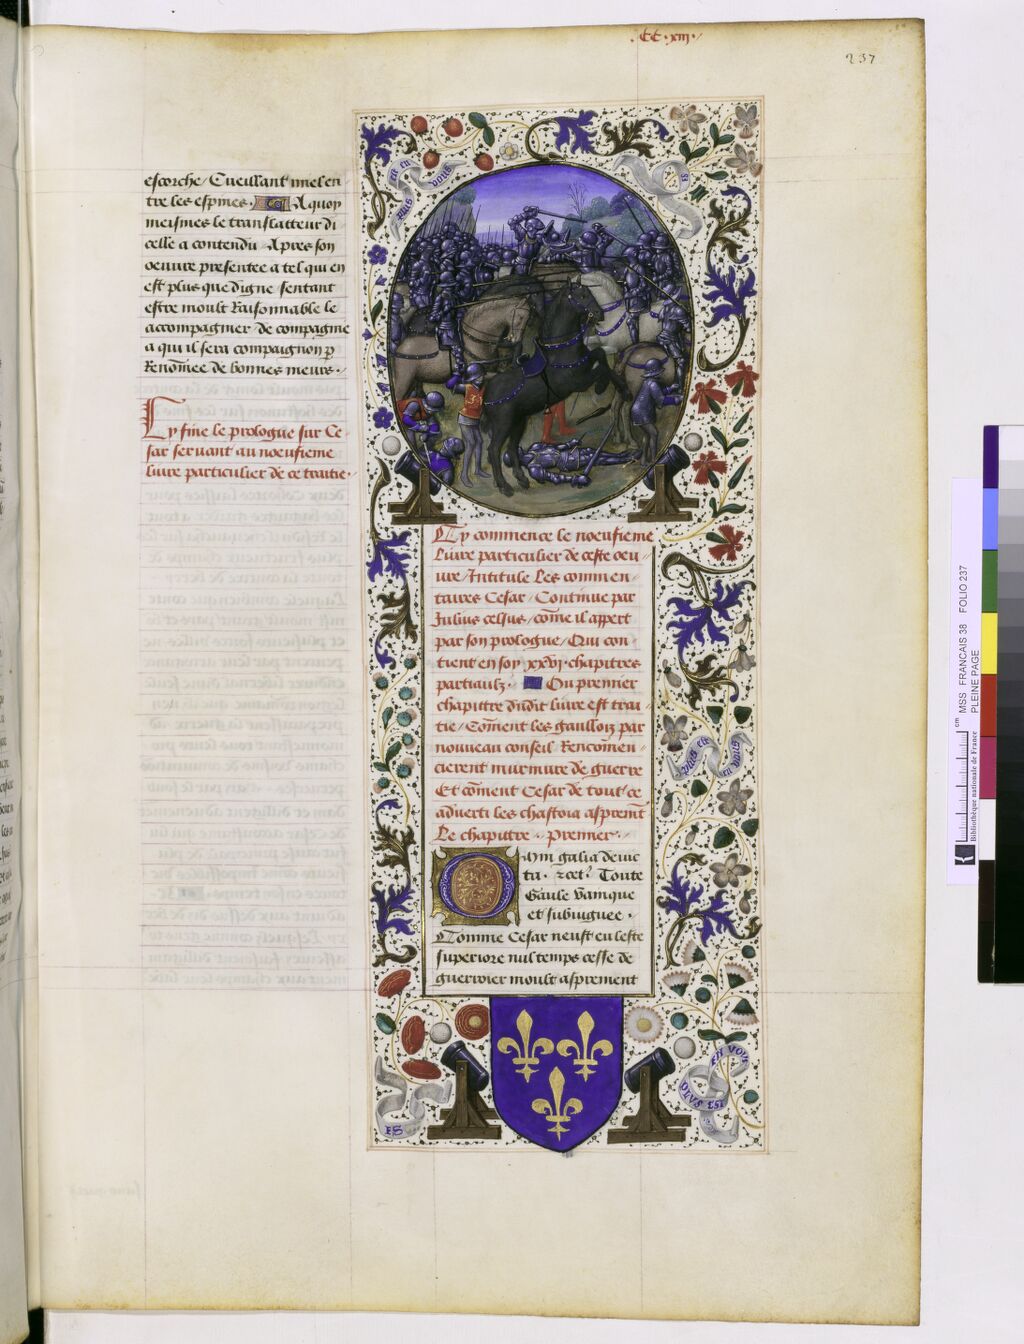 .CC.xiii.
237
escorche / Cueillant miel en
tre les espines. A quoy
meismes le translatteur di
celle a contendu Apres son
oeuure presentee a tel qui en
est plus que digne / sentant
estre moult Raisonnable le
accompaignier / de compagnie
a qui il sera compaignon p
Renomee de bonnes meurs.
Cy fine le prologue sur Ce
sar seruant au noeufieme
liure particulier de ce traitie.
plus est en vous
plus est
en vous
Cy commence le noeufieme
Liure particulier de ceste oeu
ure / Intitule Les commen
taires Cesar / Continue par
Julius celsus / come il appert
par son prologue / Qui con
tient en soy xxvi chapitres
partiaulz. Ou premier
chapittre dudit liure est trai
tie / Coment les gaulloiz par
nouueau conseil Rencomen
cierent murmure de guerre
Et coment Cesar de tout ce
aduerti les chastoia asprement
Le chapittre premier.
Cum galia deuic
ta. 2cet. Toute
Gaule vainque
et subiuguee.
Comme Cesar neust en leste
superiore nul temps cesse de
guerroier moult asprement
PLUS EST
EN VOUS
cm
MSS FRANCAIS 38 FOLIO 237
PLEINE PAGE
Bibliothèque nationale de France